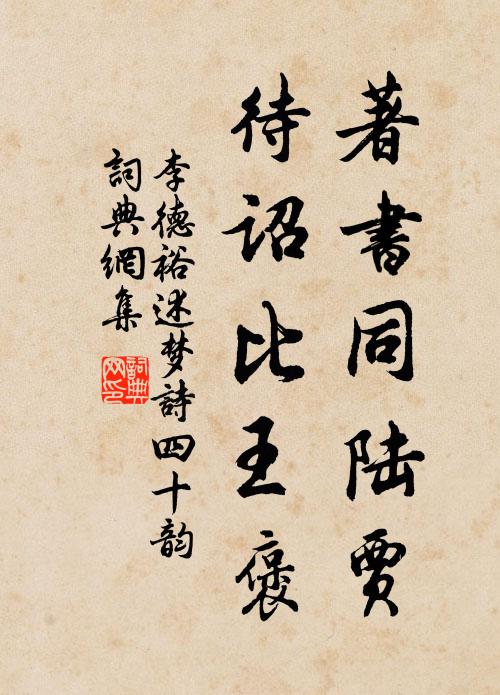 著書同陆賈
待诏比王褒
李德裕述梦詩四十韵
詞典網集
詞典网印